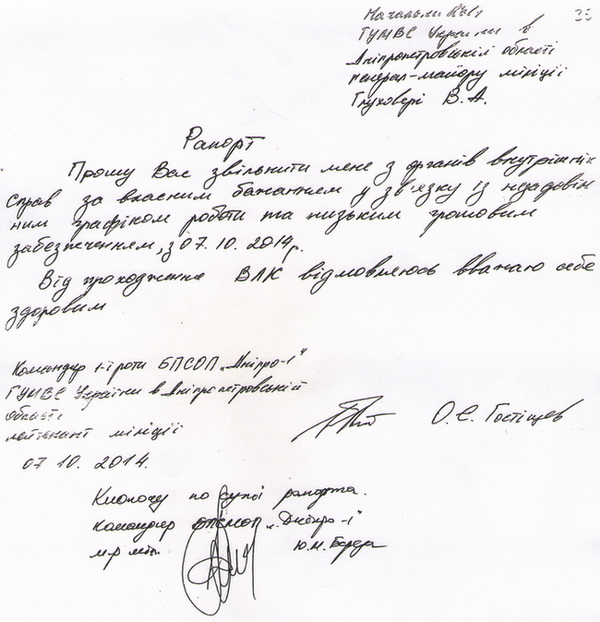 35
Начальникові
ГУМВС України в
Дніпропетровській області
генерал-майору міліції
Глуховері В.А.
Рапорт
Прошу Вас звільнити мене з органів внутрішніх
справ за власним бажанням у зв'язку із незадовіль
ним графіком роботи та низьким грошовим
забезпеченням, з 07.10.2014р.
Від проходження ВЛК відмовляюсь вважаю себе
здоровим
Командир 1-ї роти БПСОП „Дніпро-1"
ГУМВС України в Дніпропетровській
області
лейтенант міліції
О.Є. Гостіщев
07 10. 2014.
Клопочу по суті рапорта.
командир БПСМОП „Дніпро-1"
м-р міл.
Ю.М. Береза